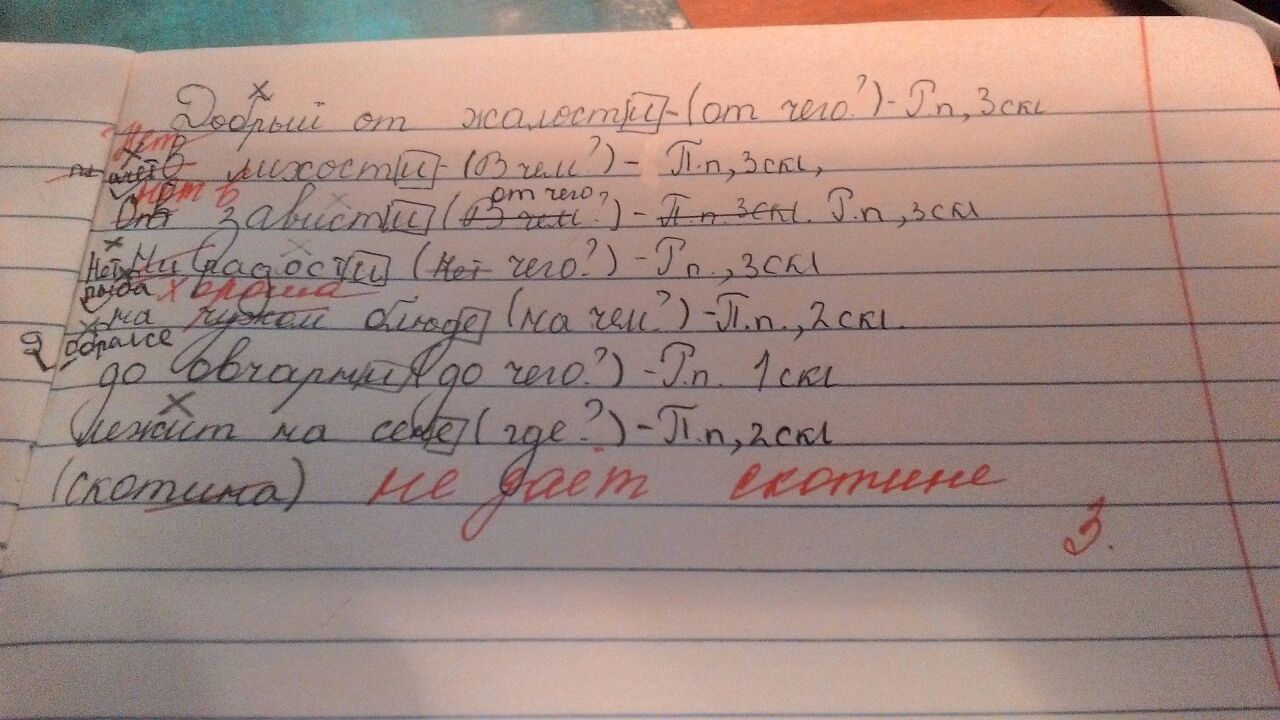 Добрый от жалости - (от чего?) - Р.п, 3 скл
Нет
плачет В лихости - (В чём?) - П.п, 3 скл,
нет в от чего?
От зависти (В чем?) - П.п. 3 скл. Р.п, 3 скл
Нет Ни радости (Нет чего?) - Р.п., 3 скл
рыба хороша
на чужом блюде (на чем?) - П.п., 2 скл.
обрался
до овчарни (до чего?) - Р.п. 1 скл
Лежит на сене (где?) - П.п, 2 скл
(скотина) не даёт скотине
3.